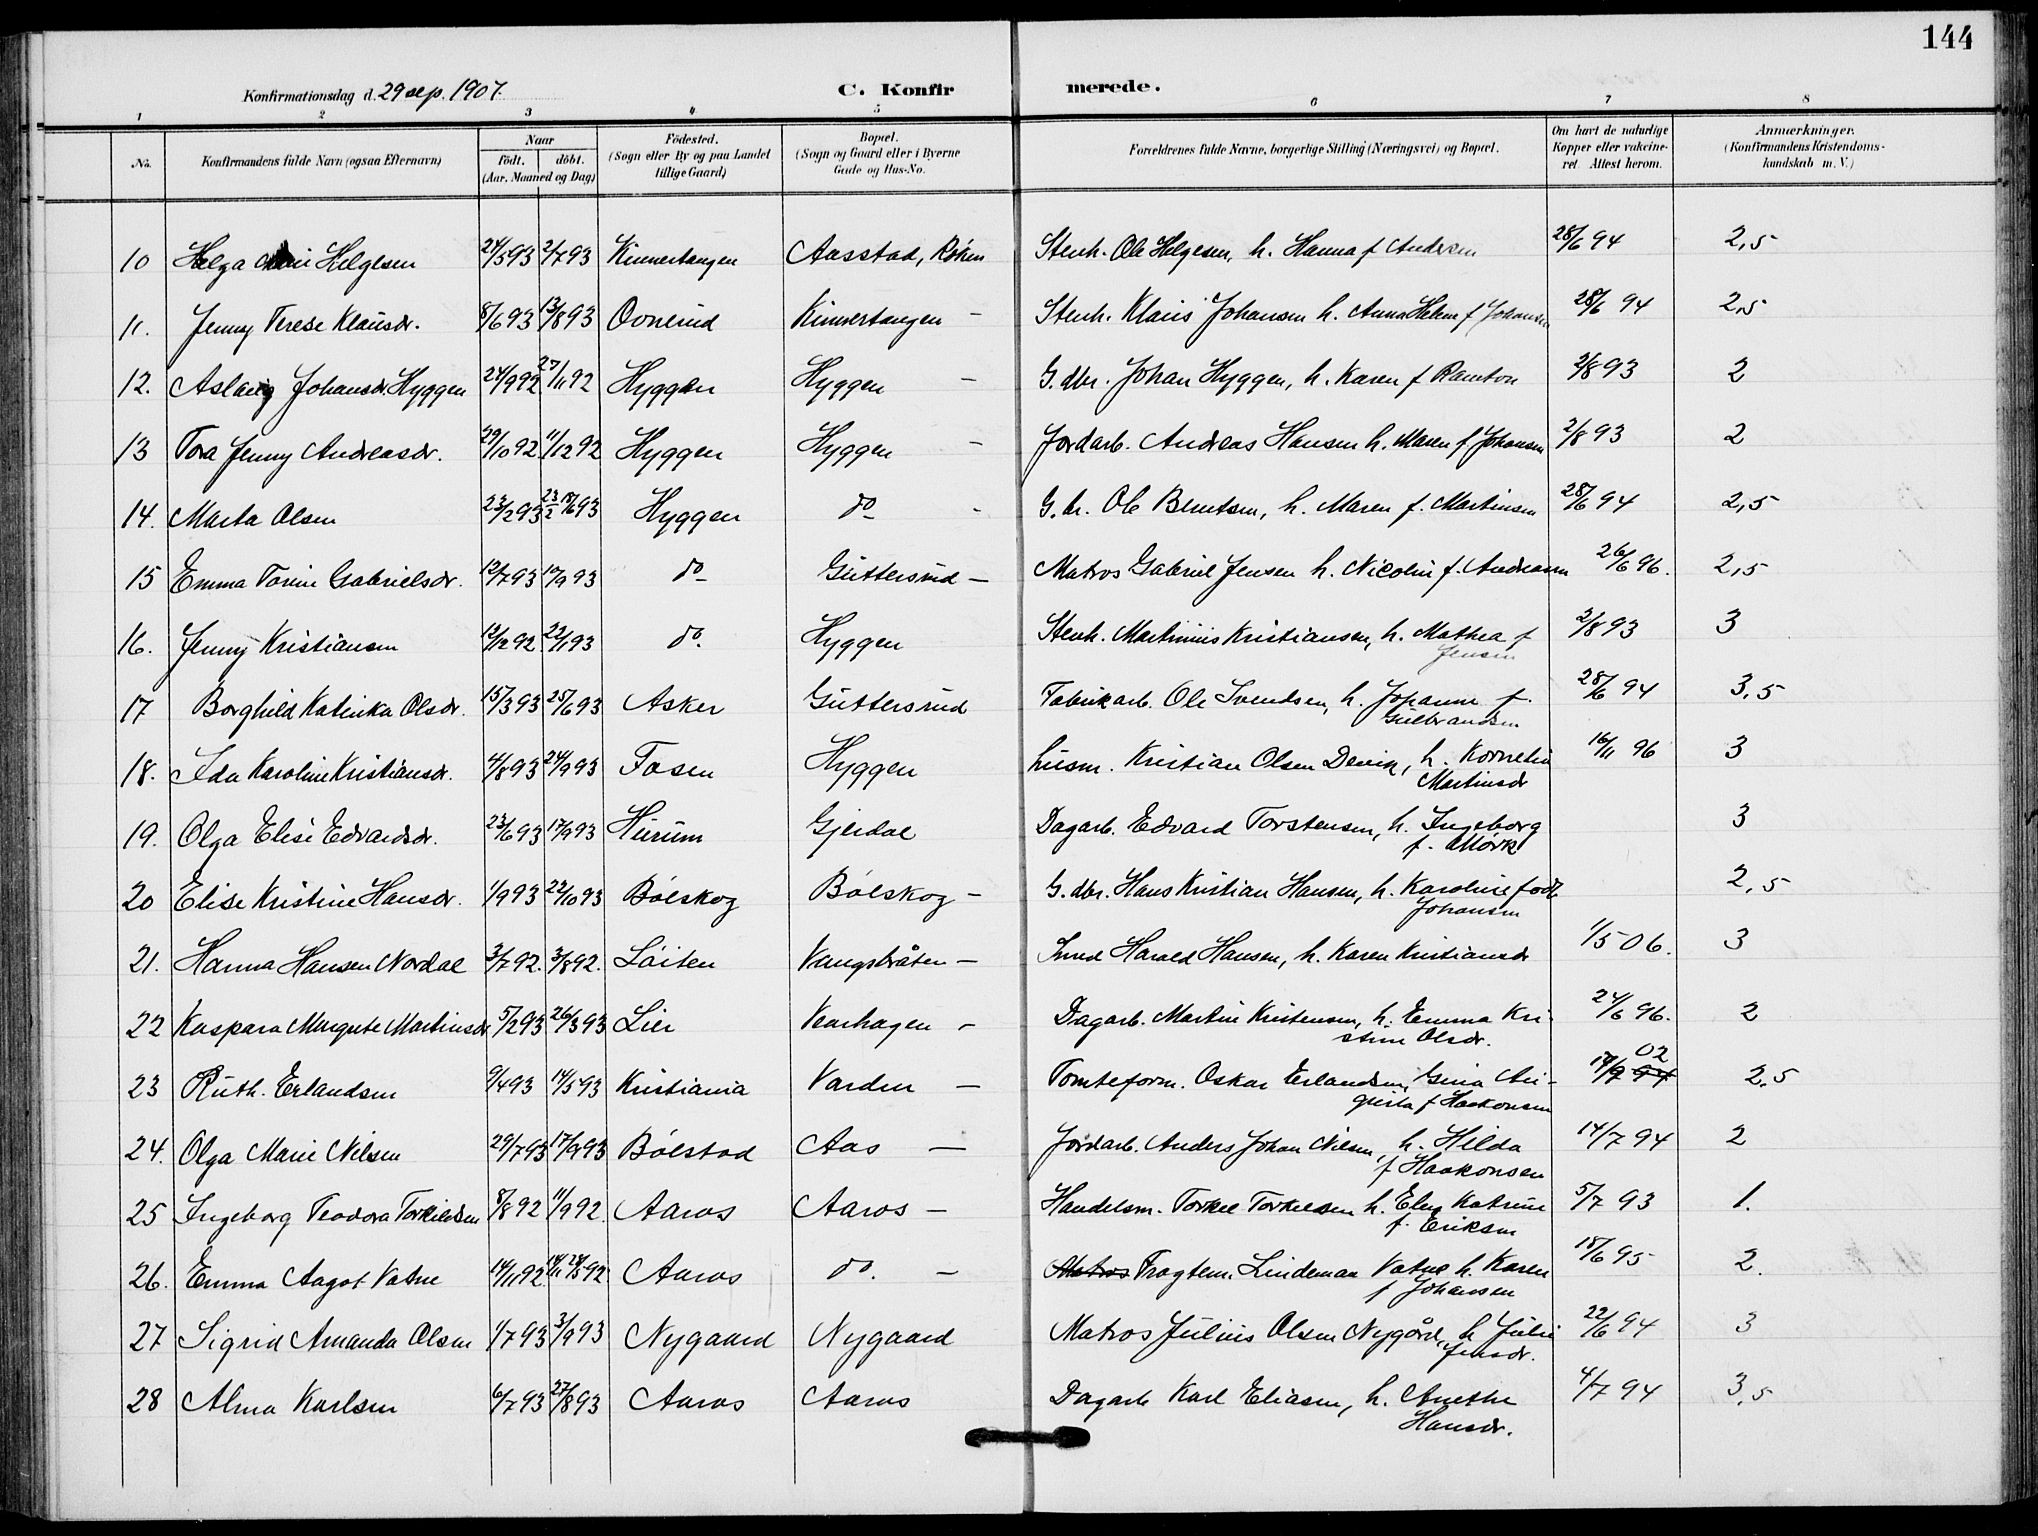 144
Konfirmationsdag d. 29 sep. 1907.
C. Konfirmerede.
1 2 3 4 5 6 7 8
No. Konfirmandens fulde Navn (ogsaa Efternavn) Naar Födt. döbt. (Aar, Maaned og Dag) Födested. (Sogn eller By og paa Landet tillige Gaard) Bopæl. (Sogn og Gaard eller i Byerne Gade og Hus-No. Forældrenes fulde Navne, borgerlige Stilling (Næringsvei) og Bopæl. Om havt de naturlige Kopper eller vakcineret. Attest herom. Anmærkninger. (Konfirmandens Kristendomskundskab m. V.)
10 Helga Marie Helgesen 24/5 93 2/7 93 Kinnertangen Aasstad, Röken Stenh. Ole Helgesen, h. Hanna f Andersen 28/6 94 2,5
11. Jenny Terese Klausdr. 8/6 93 13/8 93 Ovnerud Kinnertangen – Stenh. Klaus Johansen h. Anna Helene f Johansen 28/6 94 2,5
12. Aslaug Johansdr. Hyggen 24/9 92 27/11 92 Hyggen Hyggen – G.dbr. Johan Hyggen, h. Karen f Ramton 2/8 93 2
13 Tora Jenny Andreasdr. 29/10 92 11/12 92 Hyggen Hyggen – Jordarb. Andreas Hansen h. Maren f Johansen 2/8 93 2
14. Marta Olsen 23/2 93 23/2 18/6 93 Hyggen do – G.br. Ole Berntsen, h. Maren f. Martinsen 28/6 94 2,5
15 Emma Torine Gabrielsdr. 12/7 93 10/9 93 do Guttersrud – Matros Gabriel Jensen h. Nicoline f. Andreasen 26/6 96. 2,5
16. Jenny Kristiansen 12/12 92 22/1 93 do. Hyggen Stenh. Martinius Kristiansen, h. Mathea f Jensen 2/8 93 3
17 Borghild Katinka Olsdr. 15/3 93 25/6 93 Asker Guttersrud Fabrikarb. Ole Svendsen, h. Johanne f. Gulbrandsen 28/6 94 3,5
18. Ida Karoline Kristiansdr. 4/8 93 24/9 93 Fosen Hyggen husm. Kristian Olsen Devik, h. Kornelia Martinsdr 16/11 96 3
19. Olga Elise Edvardsdr. 23/6 93 17/9 93 Hurum Gjerdal Dagarb. Edvard Torstensen, h. Ingeborg f. Mörk 3
20 Elise Kristine Hansdr. 1/9 93 22/10 93 Bölskog Bölskog – G.dbr. Hans Kristian Hansen, h. Karoline født Johansen 2,5
21. Hanna Hansen Nordal 3/7 92. 3/8 92. Löiten Vangsbråten – Smed Harald Hansen, h. Karen Kristiansdr 1/5 06. 3
22 Kaspara Margrete Martinsdr 5/2 93 26/3 93 Lier Kværhagen – Dagarb. Martin Kristensen, h. Emma Kristine Olsdr. 24/6 96. 2
23 Ruth. Erlandsen 9/4 93 14/5 93 Kristiania Varden – Tomteform. Oskar Erlandsen, Gina Augusta f Haakonsen 02 17/9 94 2,5
24. Olga Marie Nilsen 29/7 93 17/9 93 Bölstad Aas – Jordarb. Anders Johan Nilsen, h. Hilda f Haakonsen 14/7 94 2
25 Ingeborg Teodora Torkildsen 8/8 92 11/9 92. Aaros Aaros – Handelsm. Torkel Torkelsen h. Elen Katrine f. Eriksen 5/7 93 1.
26. Emma Aagot Vatne 14/11 92 Aaros do. – Matros Fragtem. Lindeman Vatne h. Karen f Johansen 18/6 95 2.
27 Sigrid Amanda Olsen 1/7 93 3/9 93 Nygaard Nygaard Matros Julius Olsen Nygård, h Julie Jensdr. 22/6 94 3
28 Alma Karlsen 6/7 93 27/8 93 Aaros Aaros Dagarb Karl Eliasen, h. Anethe Hansdr. 4/7 94 3,5